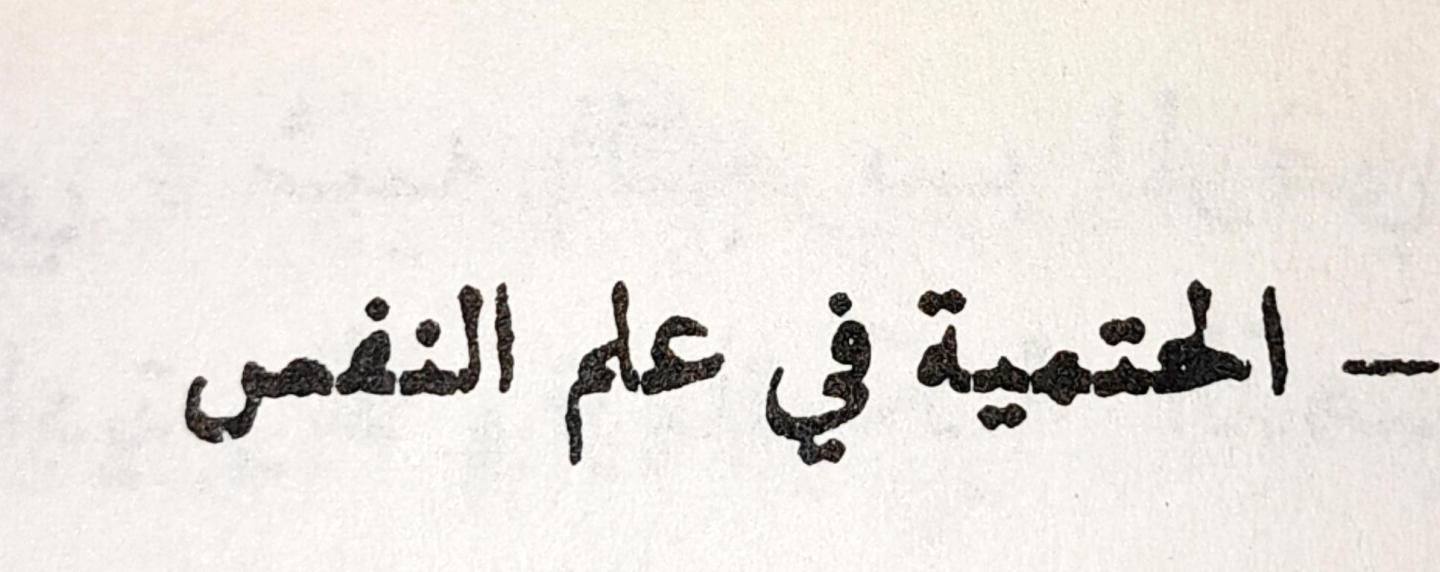 — الحتمية في علم النفس